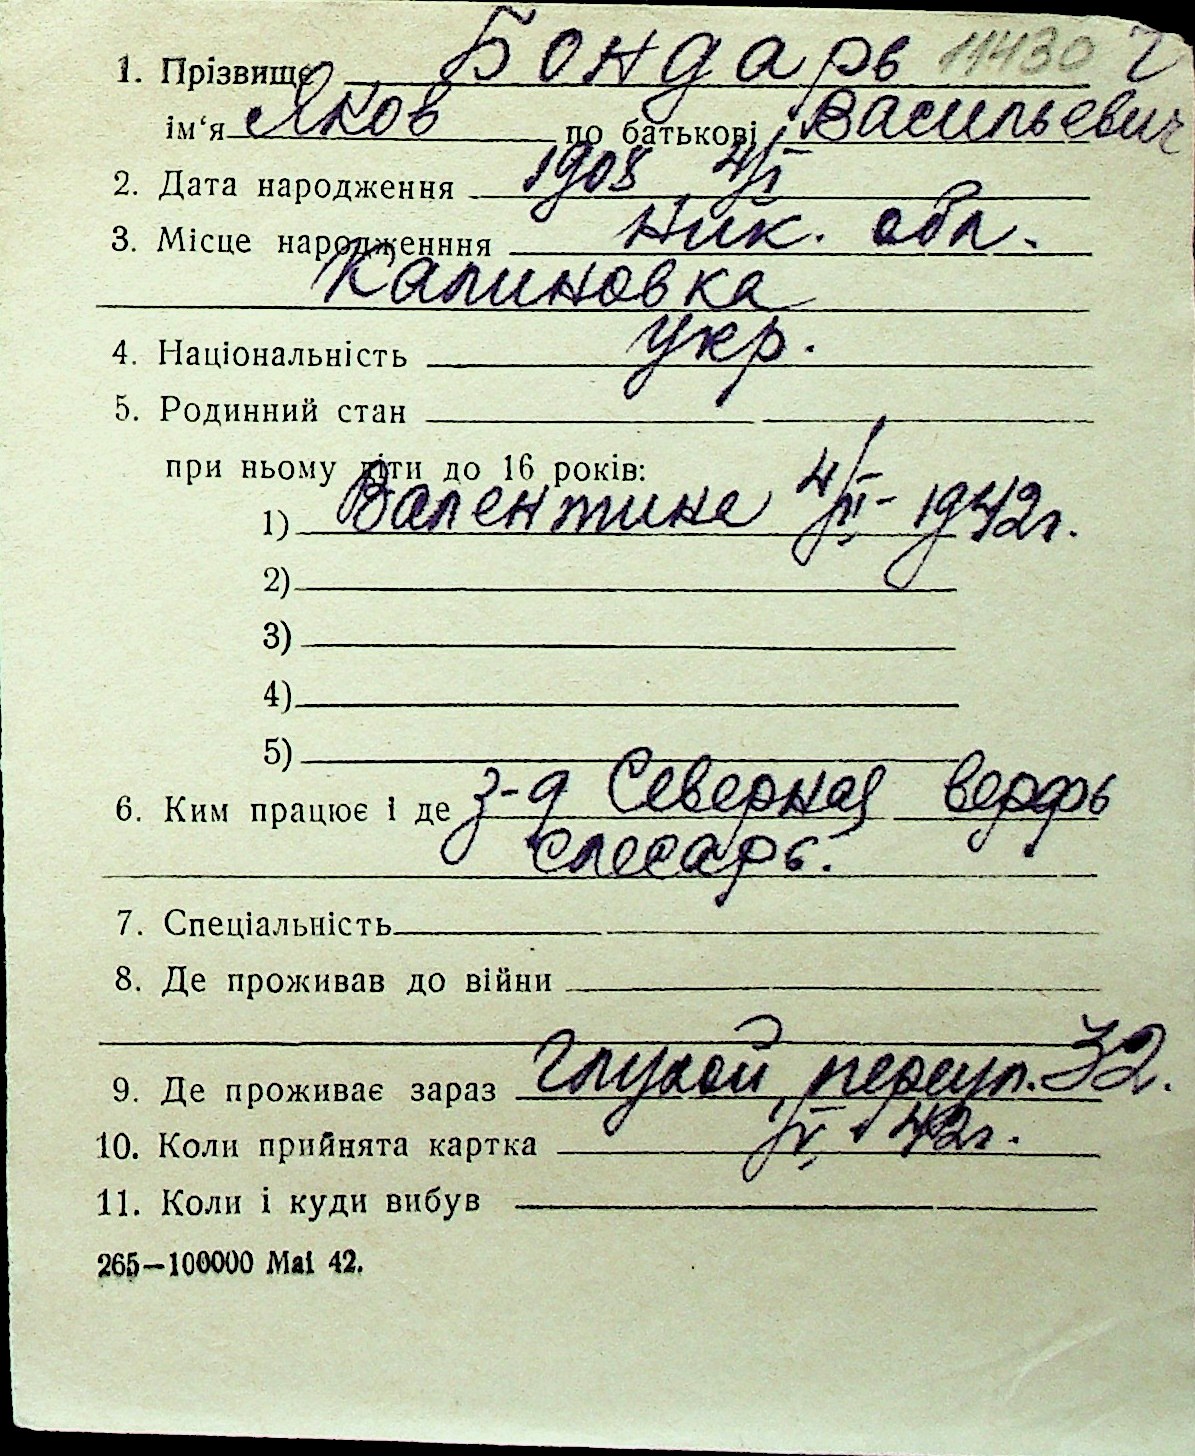 1. Прізвище Бондарь 11430
ім‘я Яков по батькові Васильевич
2. Дата народження 1908 4/I
3. Місце народженння Ник. обл.
Калиновка
4. Національність укр.
5. Родинний стан
при ньому діти до 16 років:
1) Валентина 4/III - 1942г.
2)
3)
4)
5)
6. Ким працює і де з-д Северная верфь
слесарь.
7. Спеціальність
8. Де проживав до війни
9. Де проживає зараз Глухой переул. 32.
10. Коли прийнята картка 42г.
11. Коли і куди вибув
265—100000 Маі 42.